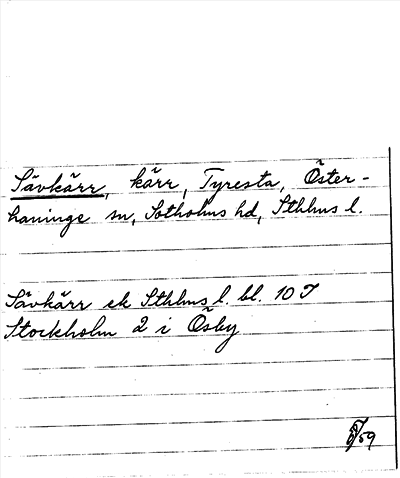 Sävkärr, kärr, Tyresta, Öster-
haninge sn, Sotholms hd, Sthlms l.
Sävkärr ek Sthlms l. bl. 10 J
Stockholm 2 i Ösby
/59